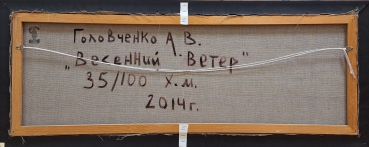 Головченко А В.
„Весенний Ветер"
35/100 х.м.
2014г.